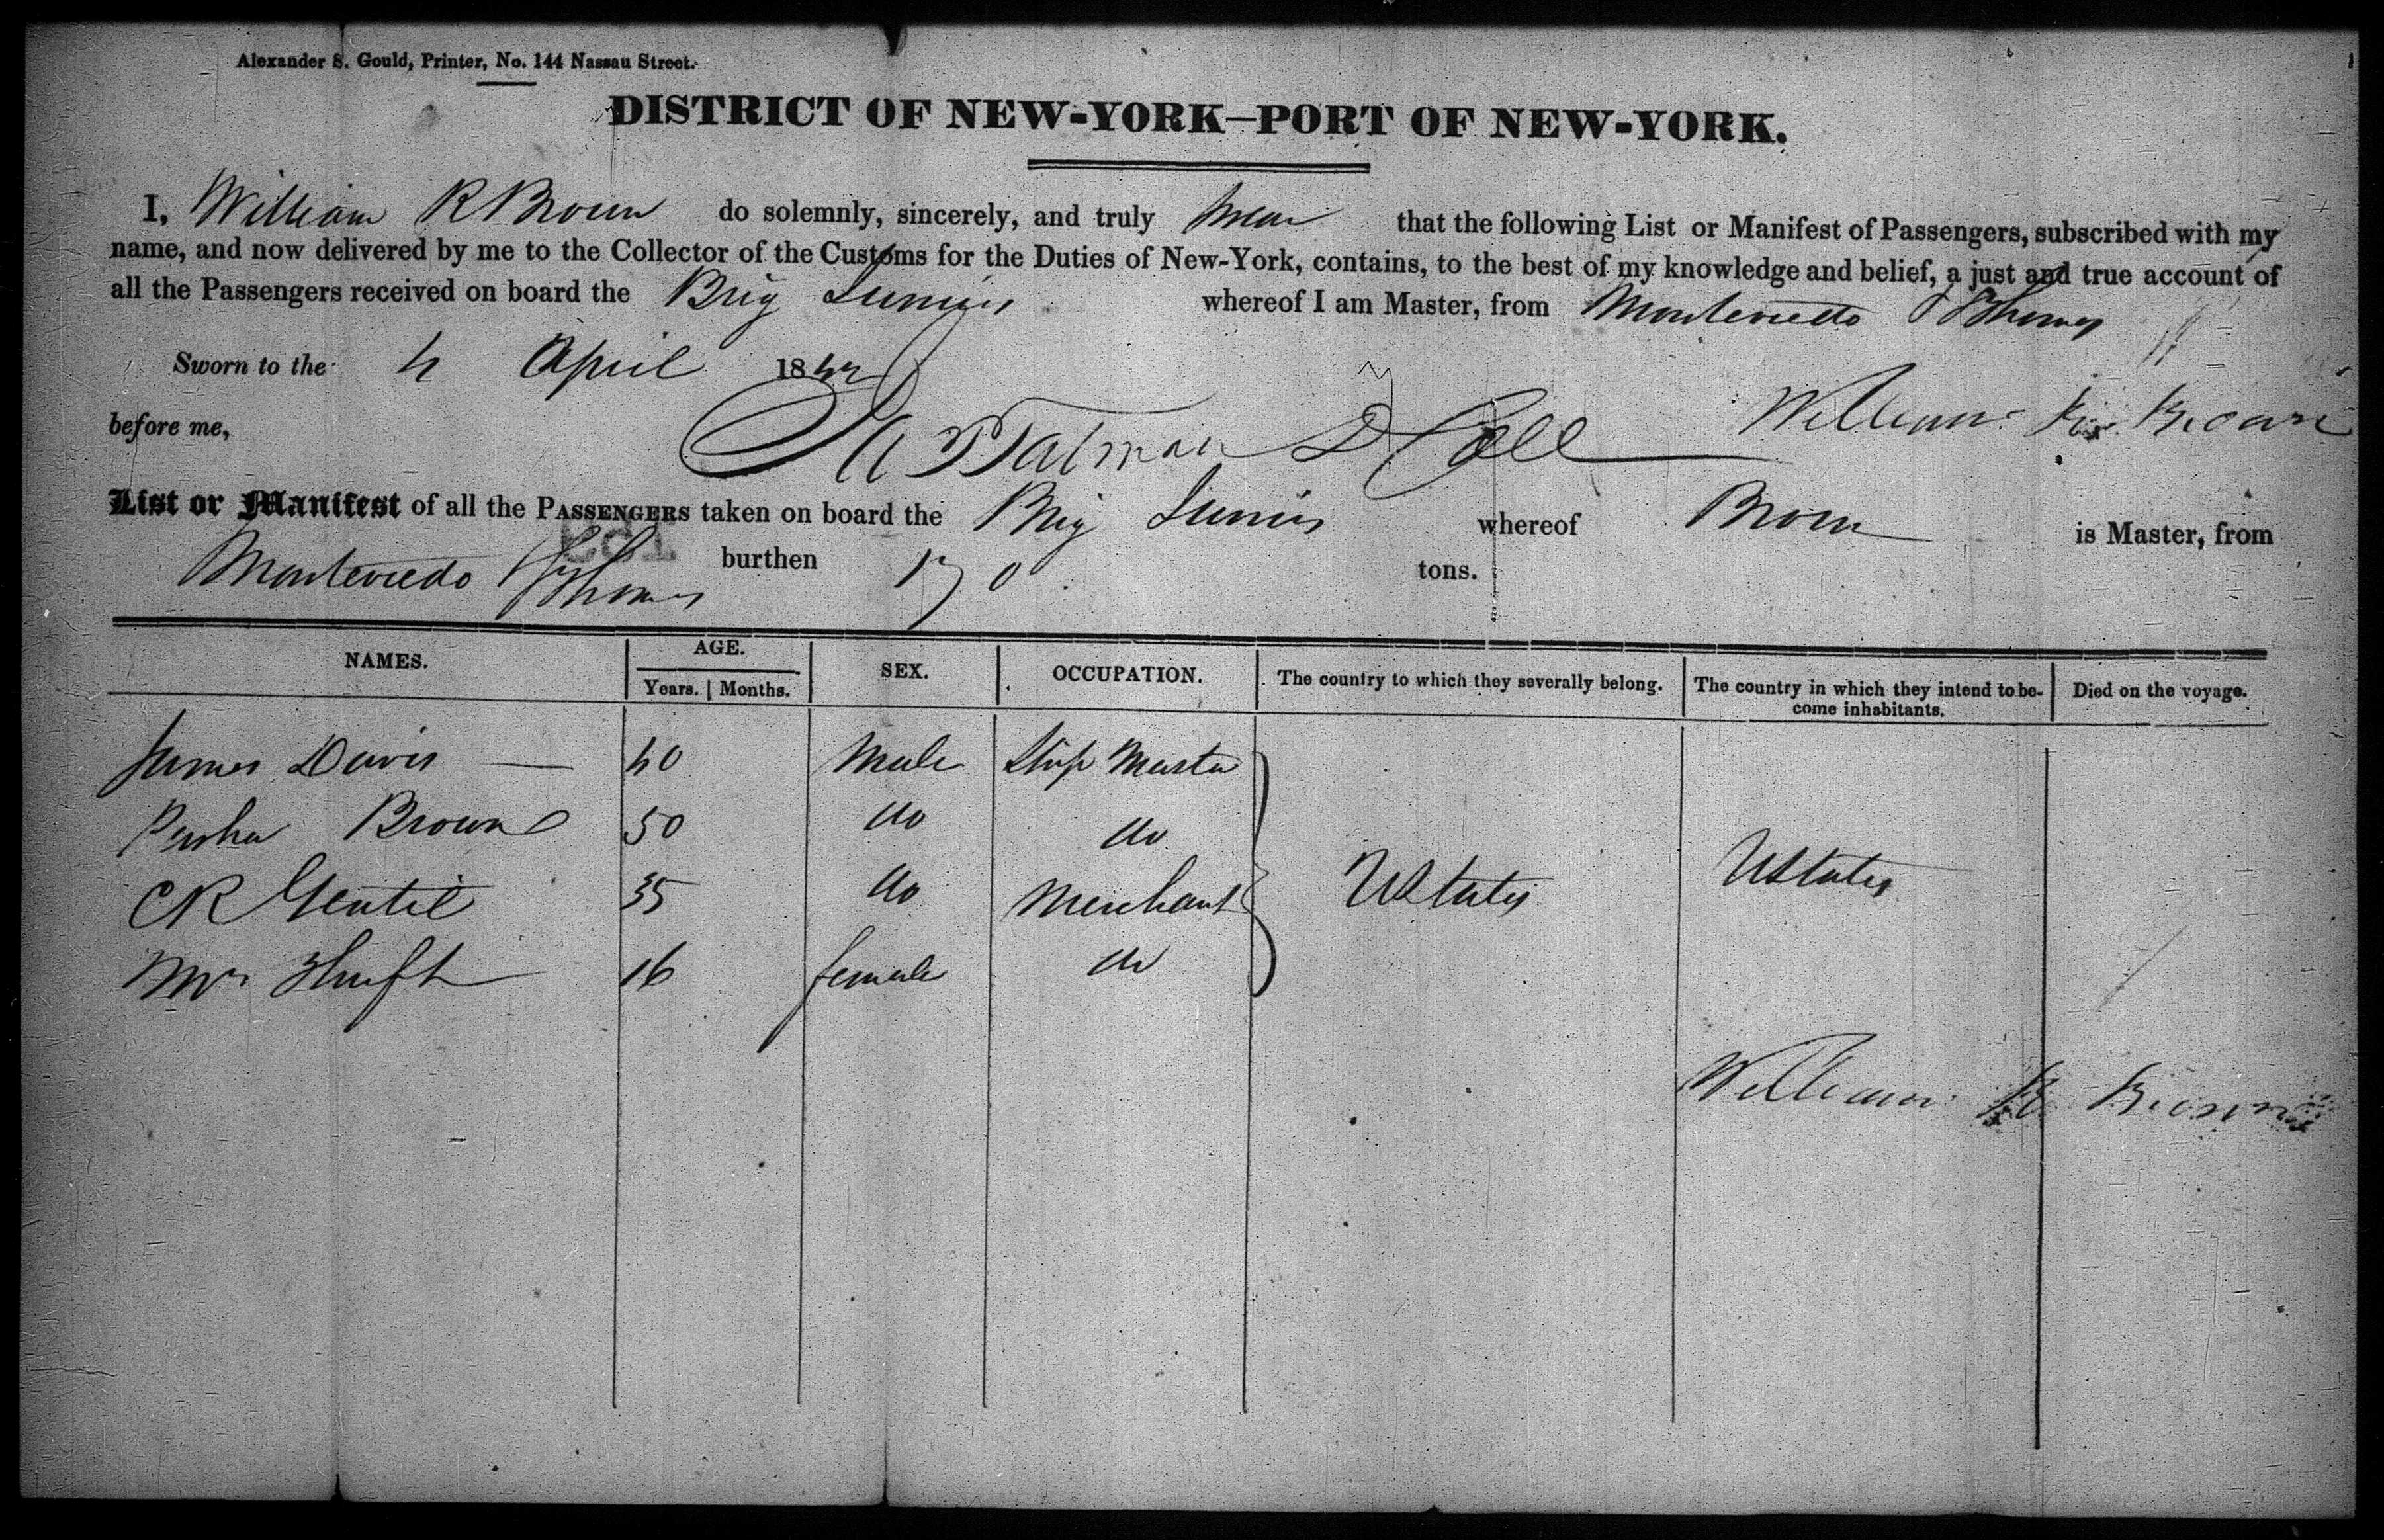 Alexander S. Gould, Printer, No. 144 Nassau Street.
DISTRICT OF NEW-YORK—PORT OF NEW-YORK.
I, William R Brown do solemnly, sincerely, and truly swear that the following List or Manifest of Passengers, subscribed with my
name, and now delivered by me to the Collector of the Customs for the Duties of New-York, contains, to the best of my knowledge and belief, a just and true account of
all the Passengers received on board the Brig Junius whereof I am Master, from Monteviedo & St Thomas
Sworn to the 4 April 1842
before me, D Coll William R Brown
List or Manifest of all the PASSENGERS taken on board the Brig Junius whereof Brown is Master, from
Monteviedo & St Thomas burthen 170 tons.
NAMES. AGE. SEX. OCCUPATION. The country to which they severally belong. The country in which they intend to be-come inhabitants. Died on the voyage.
Years. Months.
James Davis — 40 Male Ship Master
Brown 50 do do
CR Gentil 35 do Merchant UStates UStates
Mrs 16 female do
William R Brown